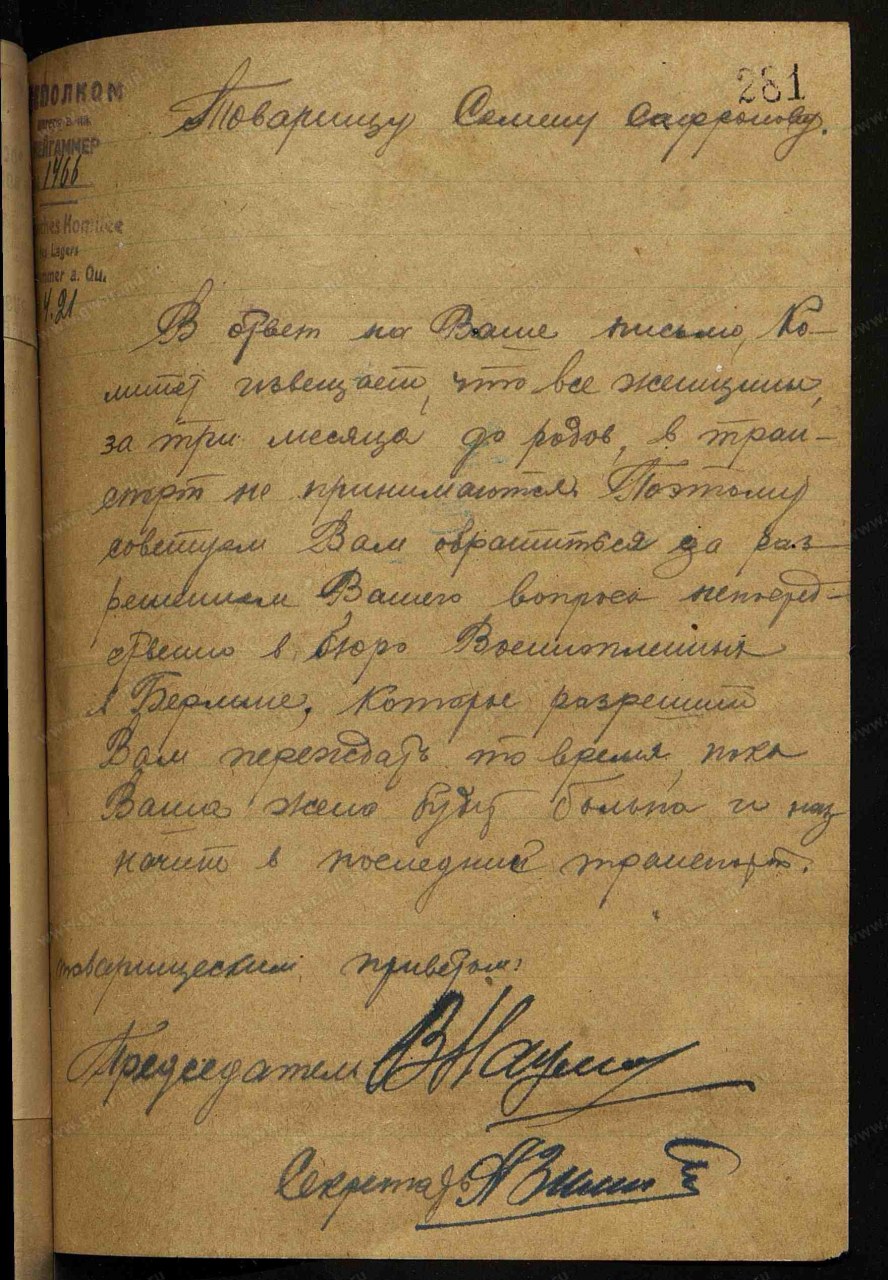 281
ПОЛКОМ
ЙГАММЕР
1466
ches Komitee
Lagers
mmer a. Qu.
4.21
Товарищу Семену Сафронову.
В ответ на Ваше письмо, Ко-
митет извещает, что все женщины,
за три месяца до родов, в тран-
спорт не принимаются. Поэтому
советуем Вам обратиться за раз-
решением Вашего вопроса непосред-
ственно в бюро Военнопленных
в Берлине, которое разрешит
Вам переждать то время, пока
Ваша жена будет больна и наз
начит в последний транспорт.
товарищеским приветом:
Председатель В Наумов
Секретарь